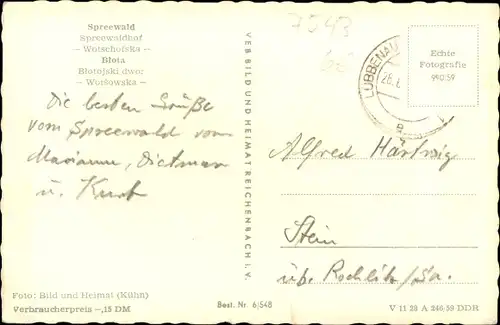 Spreewald
Spreewaldhof
– Wotschofska –
Błota
Błotojski dwor
– Wótšowska –
Die besten Grüße
vom Spreewald von
Marianne, Dietmar
u. Kurt
Foto: Bild und Heimat (Kühn)
Verbraucherpreis –,15 DM
VEB BILD UND HEIMAT REICHENBACH i. V.
Best. Nr. 6/548
7543
LÜBBENAU
a
Echte
Fotografie
9×0:59
Alfred Härtzig
Stein
üb. Rochlitz/Sa.
V 11 28 A 246/59 DDR